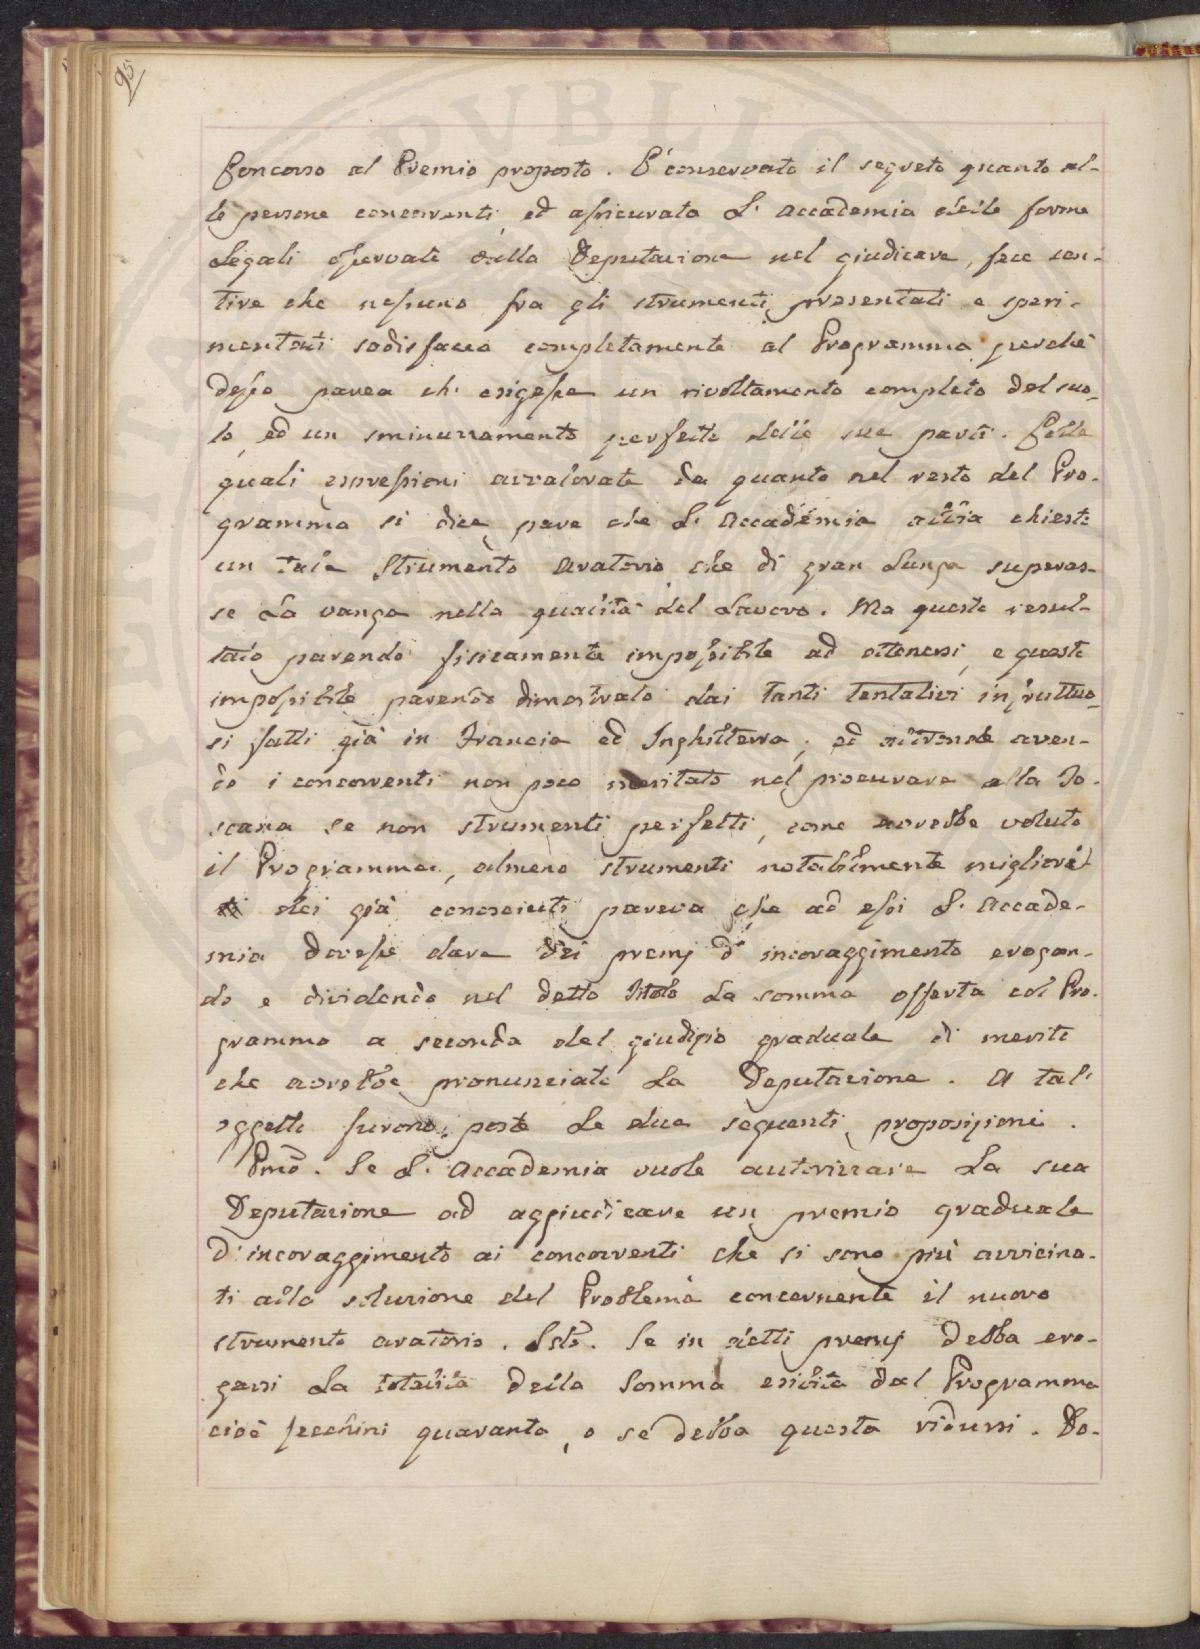 95
Concorso al Premio proposto. E conservato il segreto quanto al-
le persone concorrenti, ed assicurata L'Accademia delle forme
Legali osservate dalla Deputazione nel giudicare, fece sen-
tire che nessuno fra gli strumenti presentati e speri-
mentati sodisfacea completamente al Programma perchè
desso parea ch'esigesse un rivoltamento completo del suo-
lo, ed un sminuzzamento perfetto delle sue parti. Colle
quali espressioni avvalorate da quanto nel resto del Pro-
gramma si dice, pare che L'Accademia abbia chiesto
un tale Strumento Aratorio che di gran Lunga superas-
se La vanga nella qualità del Lavoro. Ma questo resul-
tato parendo fisicamente impossibile ad ottenersi, e questo
impossibile parendo dimostrato dai tanti tentativi infruttuo-
si fatti già in Francia ed Inghilterra; ed altronde aven-
do i concorrenti non poco meritato nel procurare alla To-
scana se non strumenti perfetti, come avrebbe voluto
il Programma, almeno strumenti notabilmente migliori
dei già conosciuti pareva che ad essi L'Accade-
mia dovesse dare dei premj d'incoraggimento erogan-
do e dividendo nel detto titolo La somma offerta col Pro-
gramma a seconda del giudizio graduale di merito
che avrebbe pronunziato La Deputazione. A tal'
oggetto furono poste Le due seguenti proposizioni.
Pmo. Se L'Accademia vuole autorizzare La sua
Deputazione ad aggiudicare un premio graduale
d'incoraggimento ai concorrenti che si sono più avvicina-
ti alla soluzione del Problema concernente il nuovo
strumento aratorio. Sdo. Se in detti premj debba ero-
garsi La totalità della Somma esibita dal Programma
cioè zecchini quaranta, o se debba questa ridursi. Do-